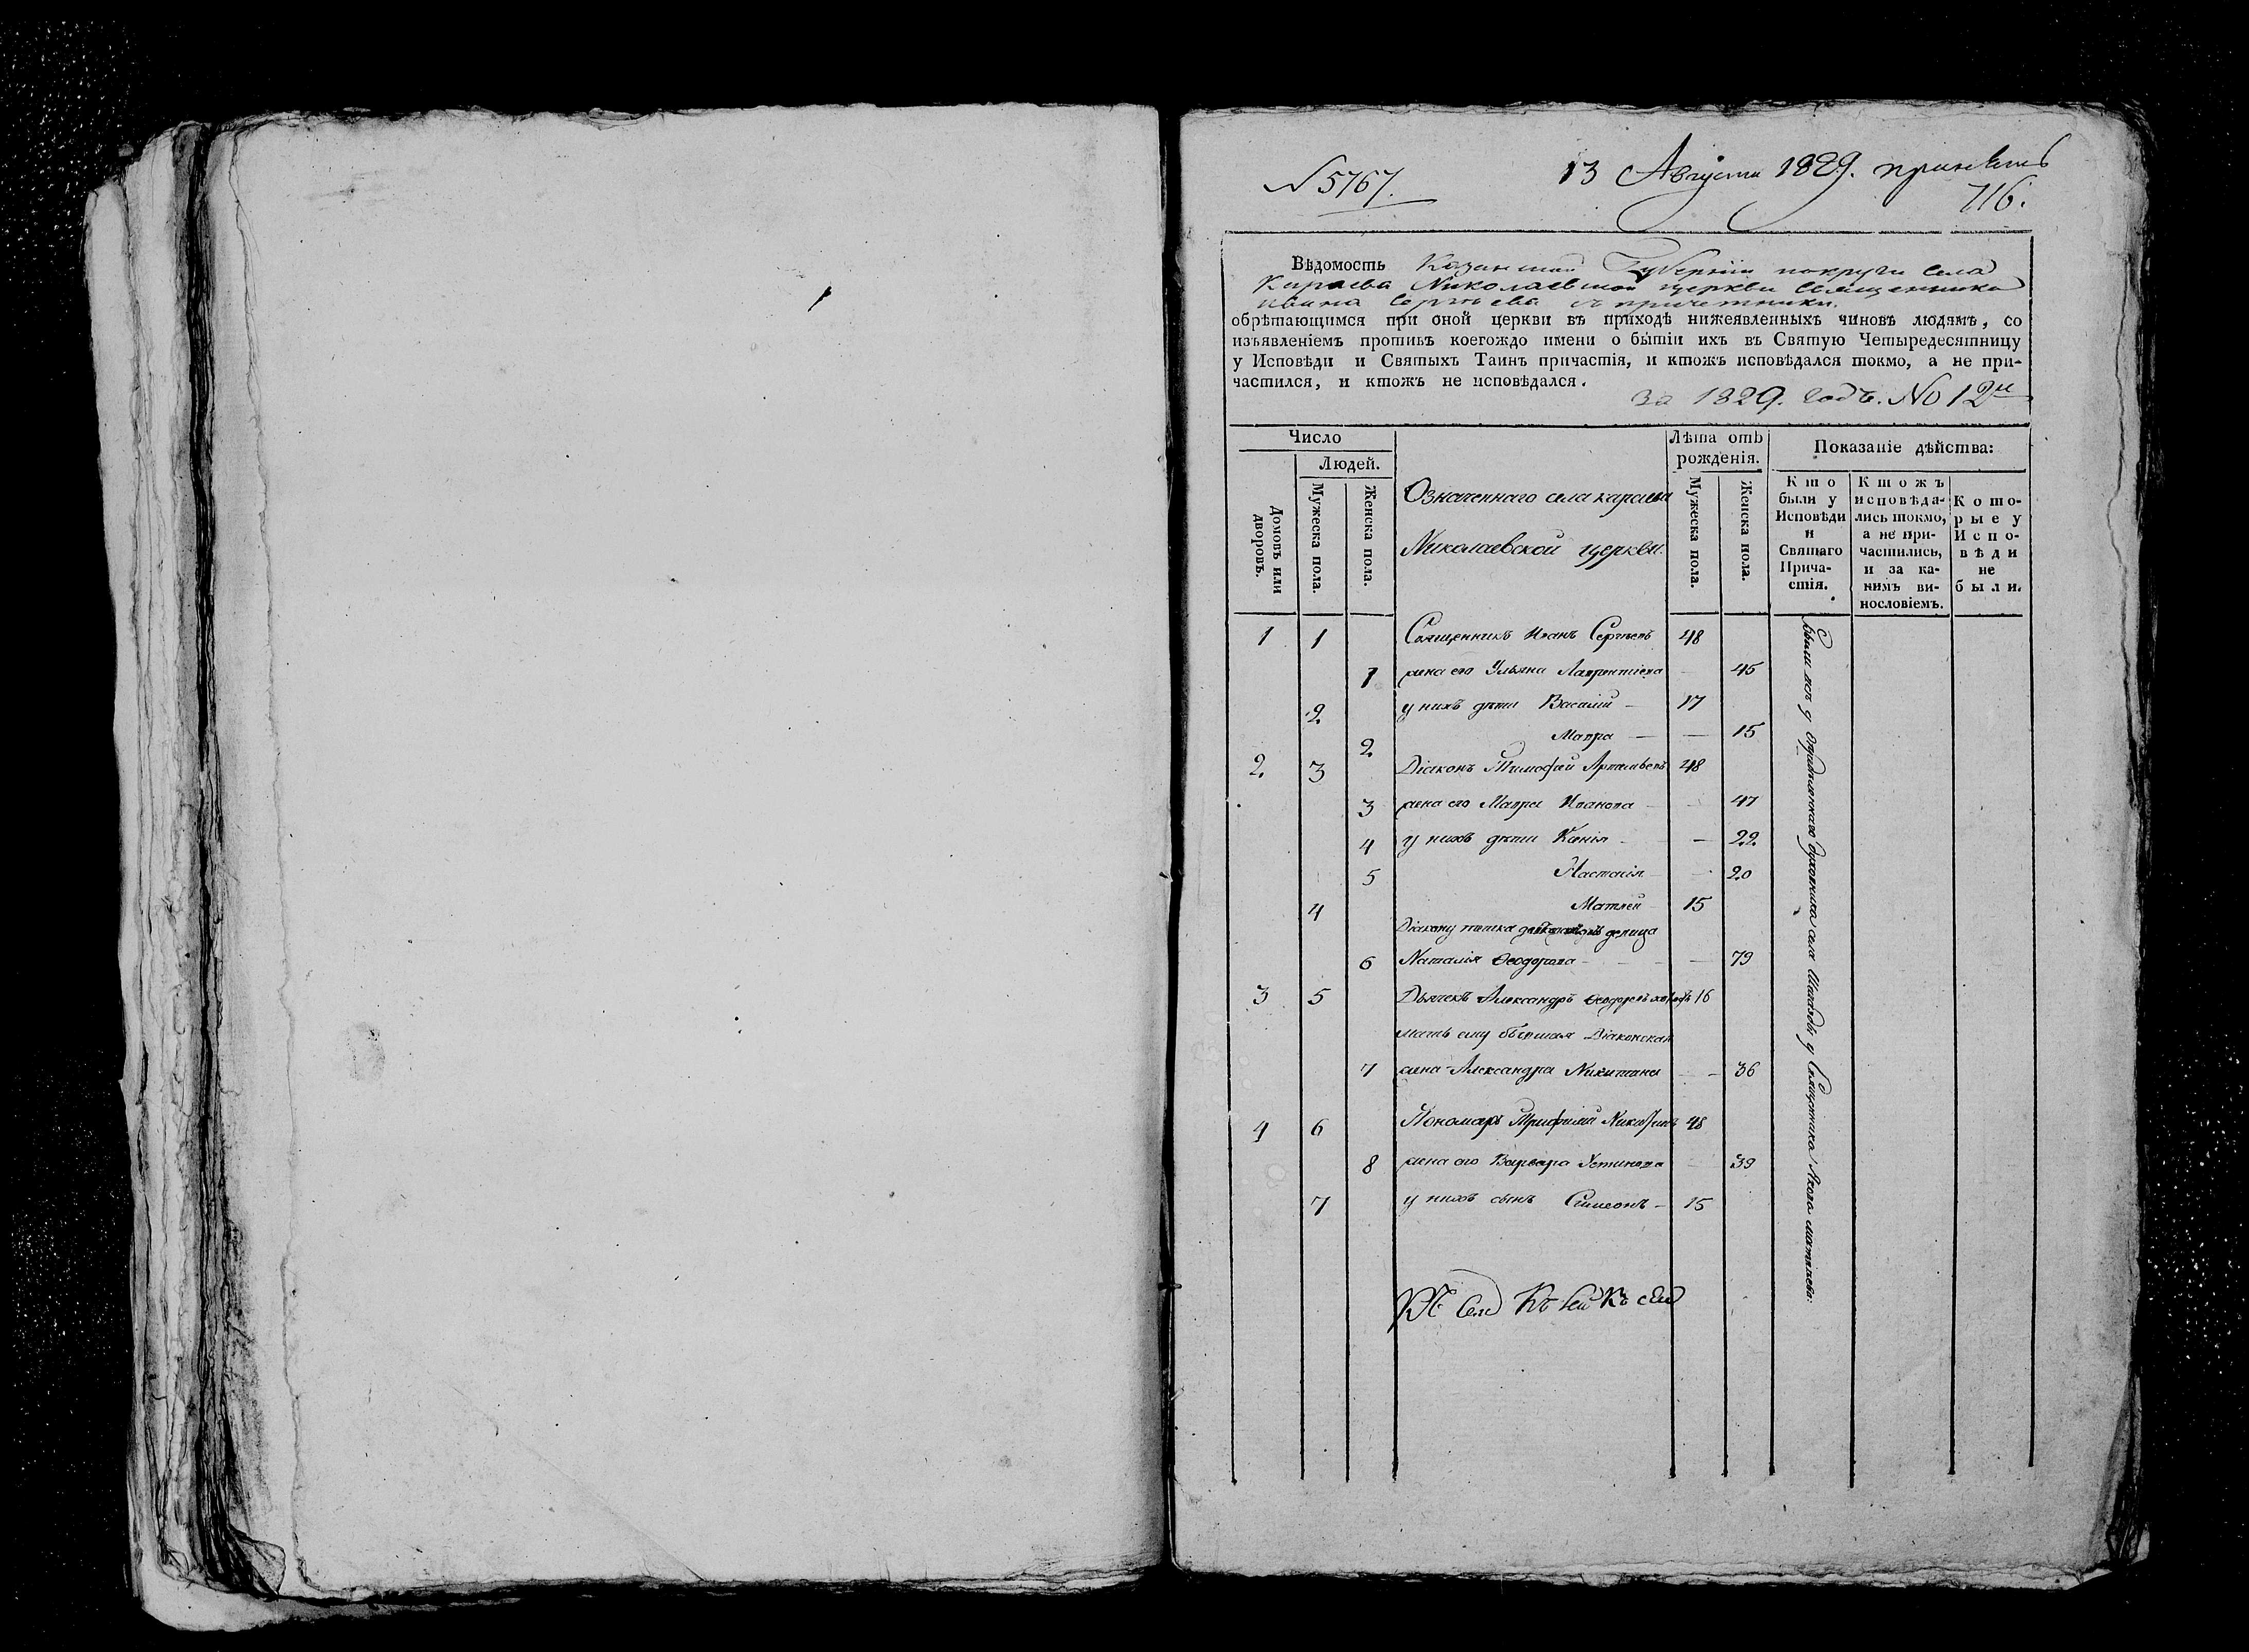 N 5767.
13 Августа 1829. принятъ
716.
Вѣдомость Казанской Губерніи округи села
Караева Николаевской церкви священника
Ивана Сергѣева съ причетники.
обрѣтающимся при оной церкви въ приходѣ нижеявленныхъ чиновъ людямъ, со
изъявленіемъ противъ коегождо имени о бытіи ихъ въ Святую Четыредесятницу
у Исповѣди и Святыхъ Таинъ причастія, и ктожъ исповѣдался токмо, а не при-
частился, и ктожъ не исповѣдался.
за 1829. годъ. No 12й
Число
Людей.
Домовъ или дворовъ.
Мужеска пола.
Женска пола.
Означеннаго села караева
Николаевской церкви.
Лѣта отъ
рожденія.
Мужеска пола.
Женска пола.
Показаніе дѣйства:
Кто
были у
Исповѣди
и
Святаго
Прича-
стія.
Ктожъ
исповѣда-
лись токмо,
а не при-
частились,
и за ка-
кимъ ви-
нословіемъ.
Кото-
рые у
Испо-
вѣди
не
были.
1 1 Священникъ Иванъ Сергѣевъ 48
1 жена его Ульяна Лаврентіева 45
2 у нихъ дѣти Василій 17
2 Мавра 15
2 3 Діаконъ Тимофѣй Артемьевъ 48
3 жена его Мавра Иванова 47
4 у нихъ дѣти Ксенія 22
5 Настасія 20
4 Матвей 15
Діакону тетка девица
6 Наталія Ѳеодорова 79
3 5 Дьячекъ Александръ Ѳеодоровъ холостъ 16
мать ему бывшая Діаконская
7 жена Александра Никитина 36
4 6 Пономарь Трифилій Никитинъ 48
8 жена его Варвара Устинова 39
7 у нихъ сынъ Симеонъ 15
Были всѣ у опредѣленнаго духовника села у Священника Якова матвеева: